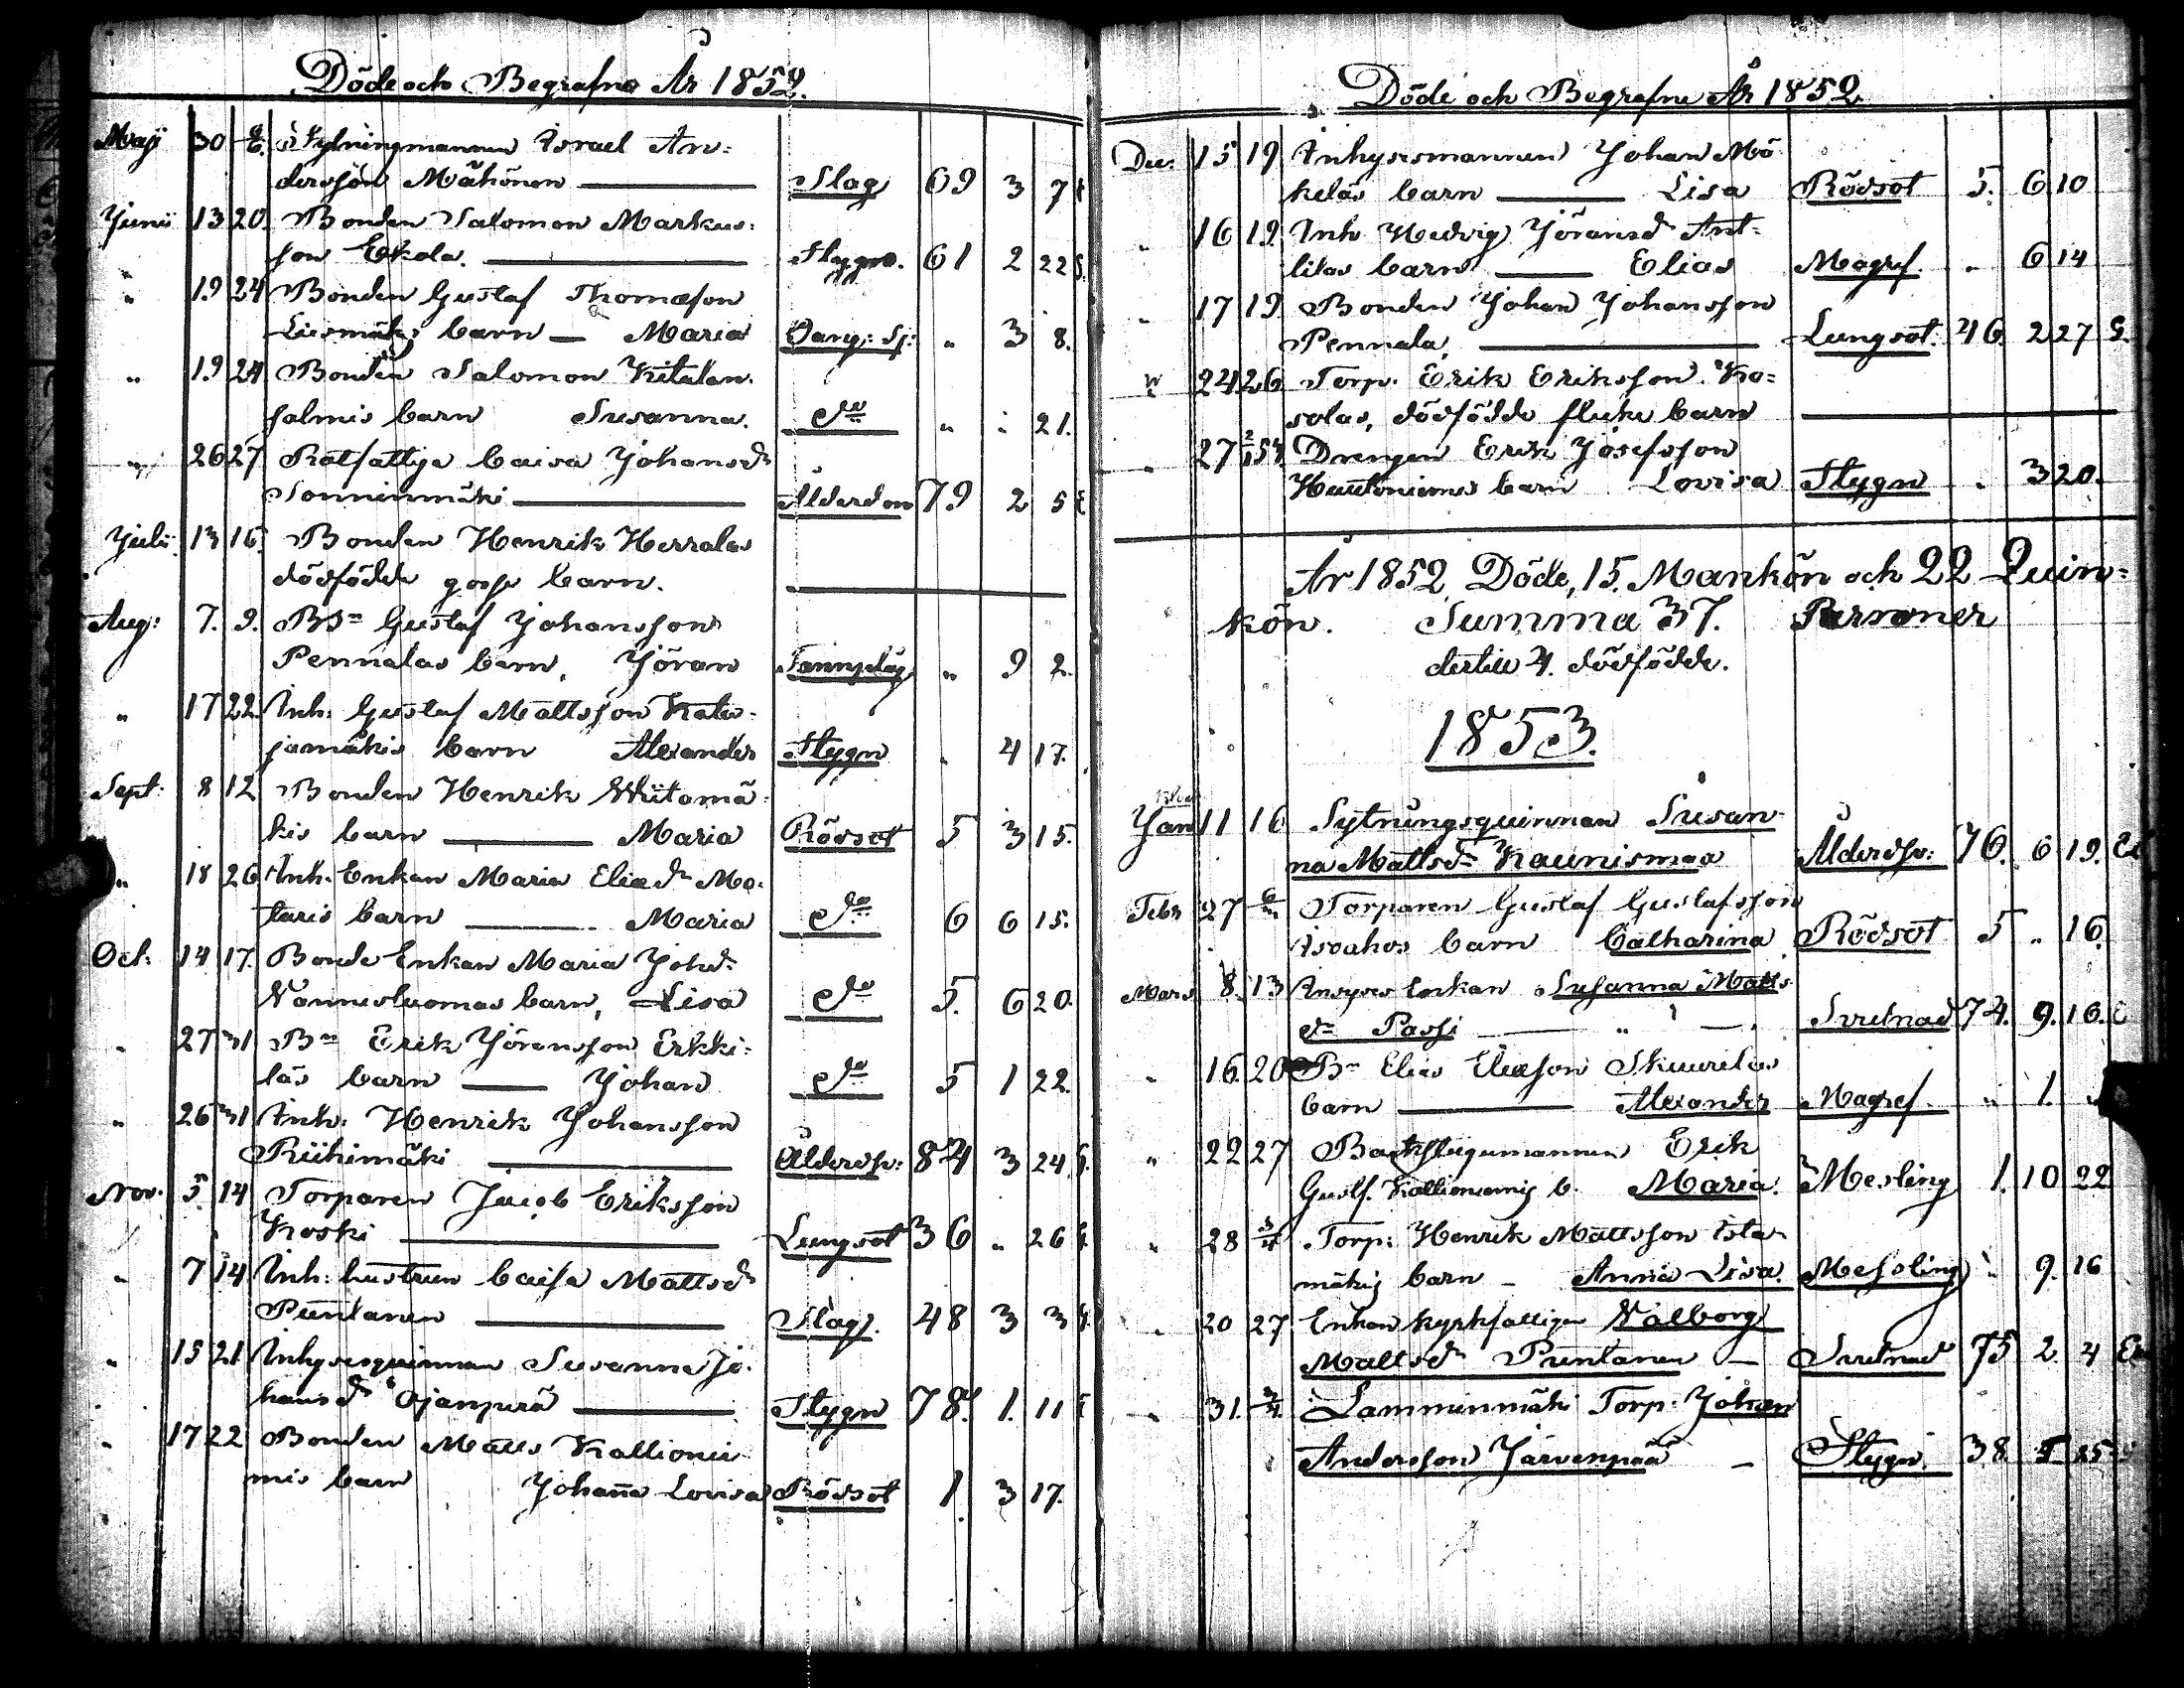 Döde och Begrafne År 1852.
Maji 30 Sytningmannen Israel An-
dersson Mäkönen Slag 69 3 7
Junii 13 20. Bonden Salomon Markus-
son Ekola. Stygn. 61 2 22
" 19 24 Bonden Gustaf Thomæson
Liesmäkis barn — Maria " 3 8.
" 19 24 Bonden Salomon Kitalan-
salmis barn Susanna. do " " 21.
" 26 27 Rotfattiga Caisa Johansdr
Sonninmäki Ålderdom 79 2 5
Julii 13 16. Bonden Henrik Herralas
dödfödde gosse barn.
Aug: 7. 9. Bdsn Gustaf Johansson
Pennalas barn, Jöran " 9 2.
" 17 22. Inh: Gustaf Mattsson Kata-
jamäkis barn Alexander Stygn " 4 17.
Sept. 8 12 Bonden Henrik Wiitamä-
kis barn Maria Rödsot 5 3 15.
" 18 26 Inh. Enkan Maria Eliædr Ma-
taris barn Maria do 6 6 15.
Oct: 14 17. Bonde Enkan Maria Johdr
Wannesluomas barn, Lisa do 5. 6 20.
" 27 31 Bn Erik Jöransson Erkki-
läs barn Johan do 5 1 22.
" 26 31 Inh: Henrik Johansson
Riihimäki Ålderdr: 84 3 24
Nov. 5 14 Torparen Jacob Eriksson
Koski Lungsot 36 " 26
" 7 14 Inh: hustrun Caisa Mattsdr
Puntanen Slag. 48 3 3
" 15 21 Inhysesquinnan Susanna Jo-
hansdr Ojanperä Stygn 78. 1. 11
" 17 22 Bonden Matts Kallionie-
mis barn Johanna Lovisa Rödsot 1 3 17.
Döde och Begrafne År 1852.
Dec. 15 19 Inhysesmannen Johan Mä-
keläs barn Lisa Rödsot 5. 6 10
" 16 19 Inh. Hedvig Jöransdr Ant-
tilas barn Elias Magref. " 6 14
" 17 19 Bonden Johan Johansson
Pennala, Lungsot. 46. 2 27
" 24 26 Torp. Erik Eriksson Ko-
solas, dödfödde flicke barn
" 27 2/1 53. Drengen Erik Josefsson
Huutoniemis barn Lovisa Stygn " 3 20.
År 1852 Döde, 15. Mankön och 22 Quin-
kön. Summa 37. Personer
dertill 4. dödfödde.
1853.
Jan 11 16 Sytningsquinnan Susan-
na Mattsdr Kaunismaa Ålderdr: 76. 6 19.
Febr 27 6/3 Torparen Gustaf Gustafsson
Isoahos barn Catharina Rödsot 5 " 16.
Mars 8. 13 Inhyses Enkan Susanna Matts-
dr Passi — " — 74. 9. 16.
" 16. 20 Bn Elias Eliæson Skuurilas
barn Alexander Magref. " 1.
" 22 27 Backstugumannen Erik
Gustf. Kallioniemis b. Maria. Mesling 1. 10 22
" 28 3/4 Torp: Henrik Mattsson Ista-
mäkis barn — Anna Lisa. Messling " 9. 16
" 20 27 Enkan kyrkfattiga Walborg
Mattsdr Puntanen — 75 2. 4
" 31. 3/4. Lamminmäki Torp: Johan
Andersson Järvenpää — Stygn. 38. 5 25